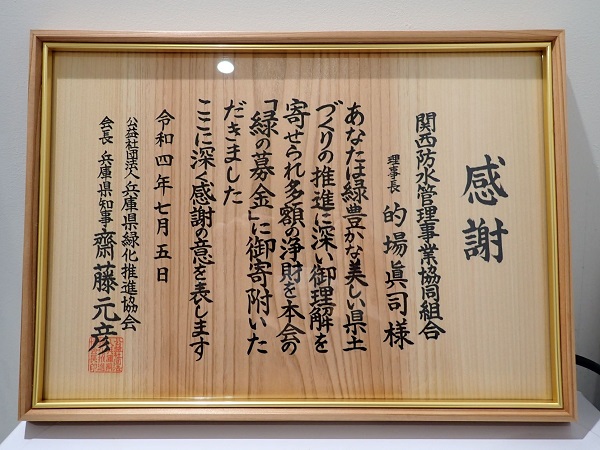 感謝
関西防水管理事業協同組合
理事長 的場眞司様
あなたは緑豊かな美しい県土
づくりの推進に深い御理解を
寄せられ多額の浄財を本会の
「緑の募金」に御寄附いた
だきました
ここに深く感謝の意を表します
令和四年七月五日
公益社団法人兵庫県緑化推進協会
会長 兵庫県知事 齋藤元彦